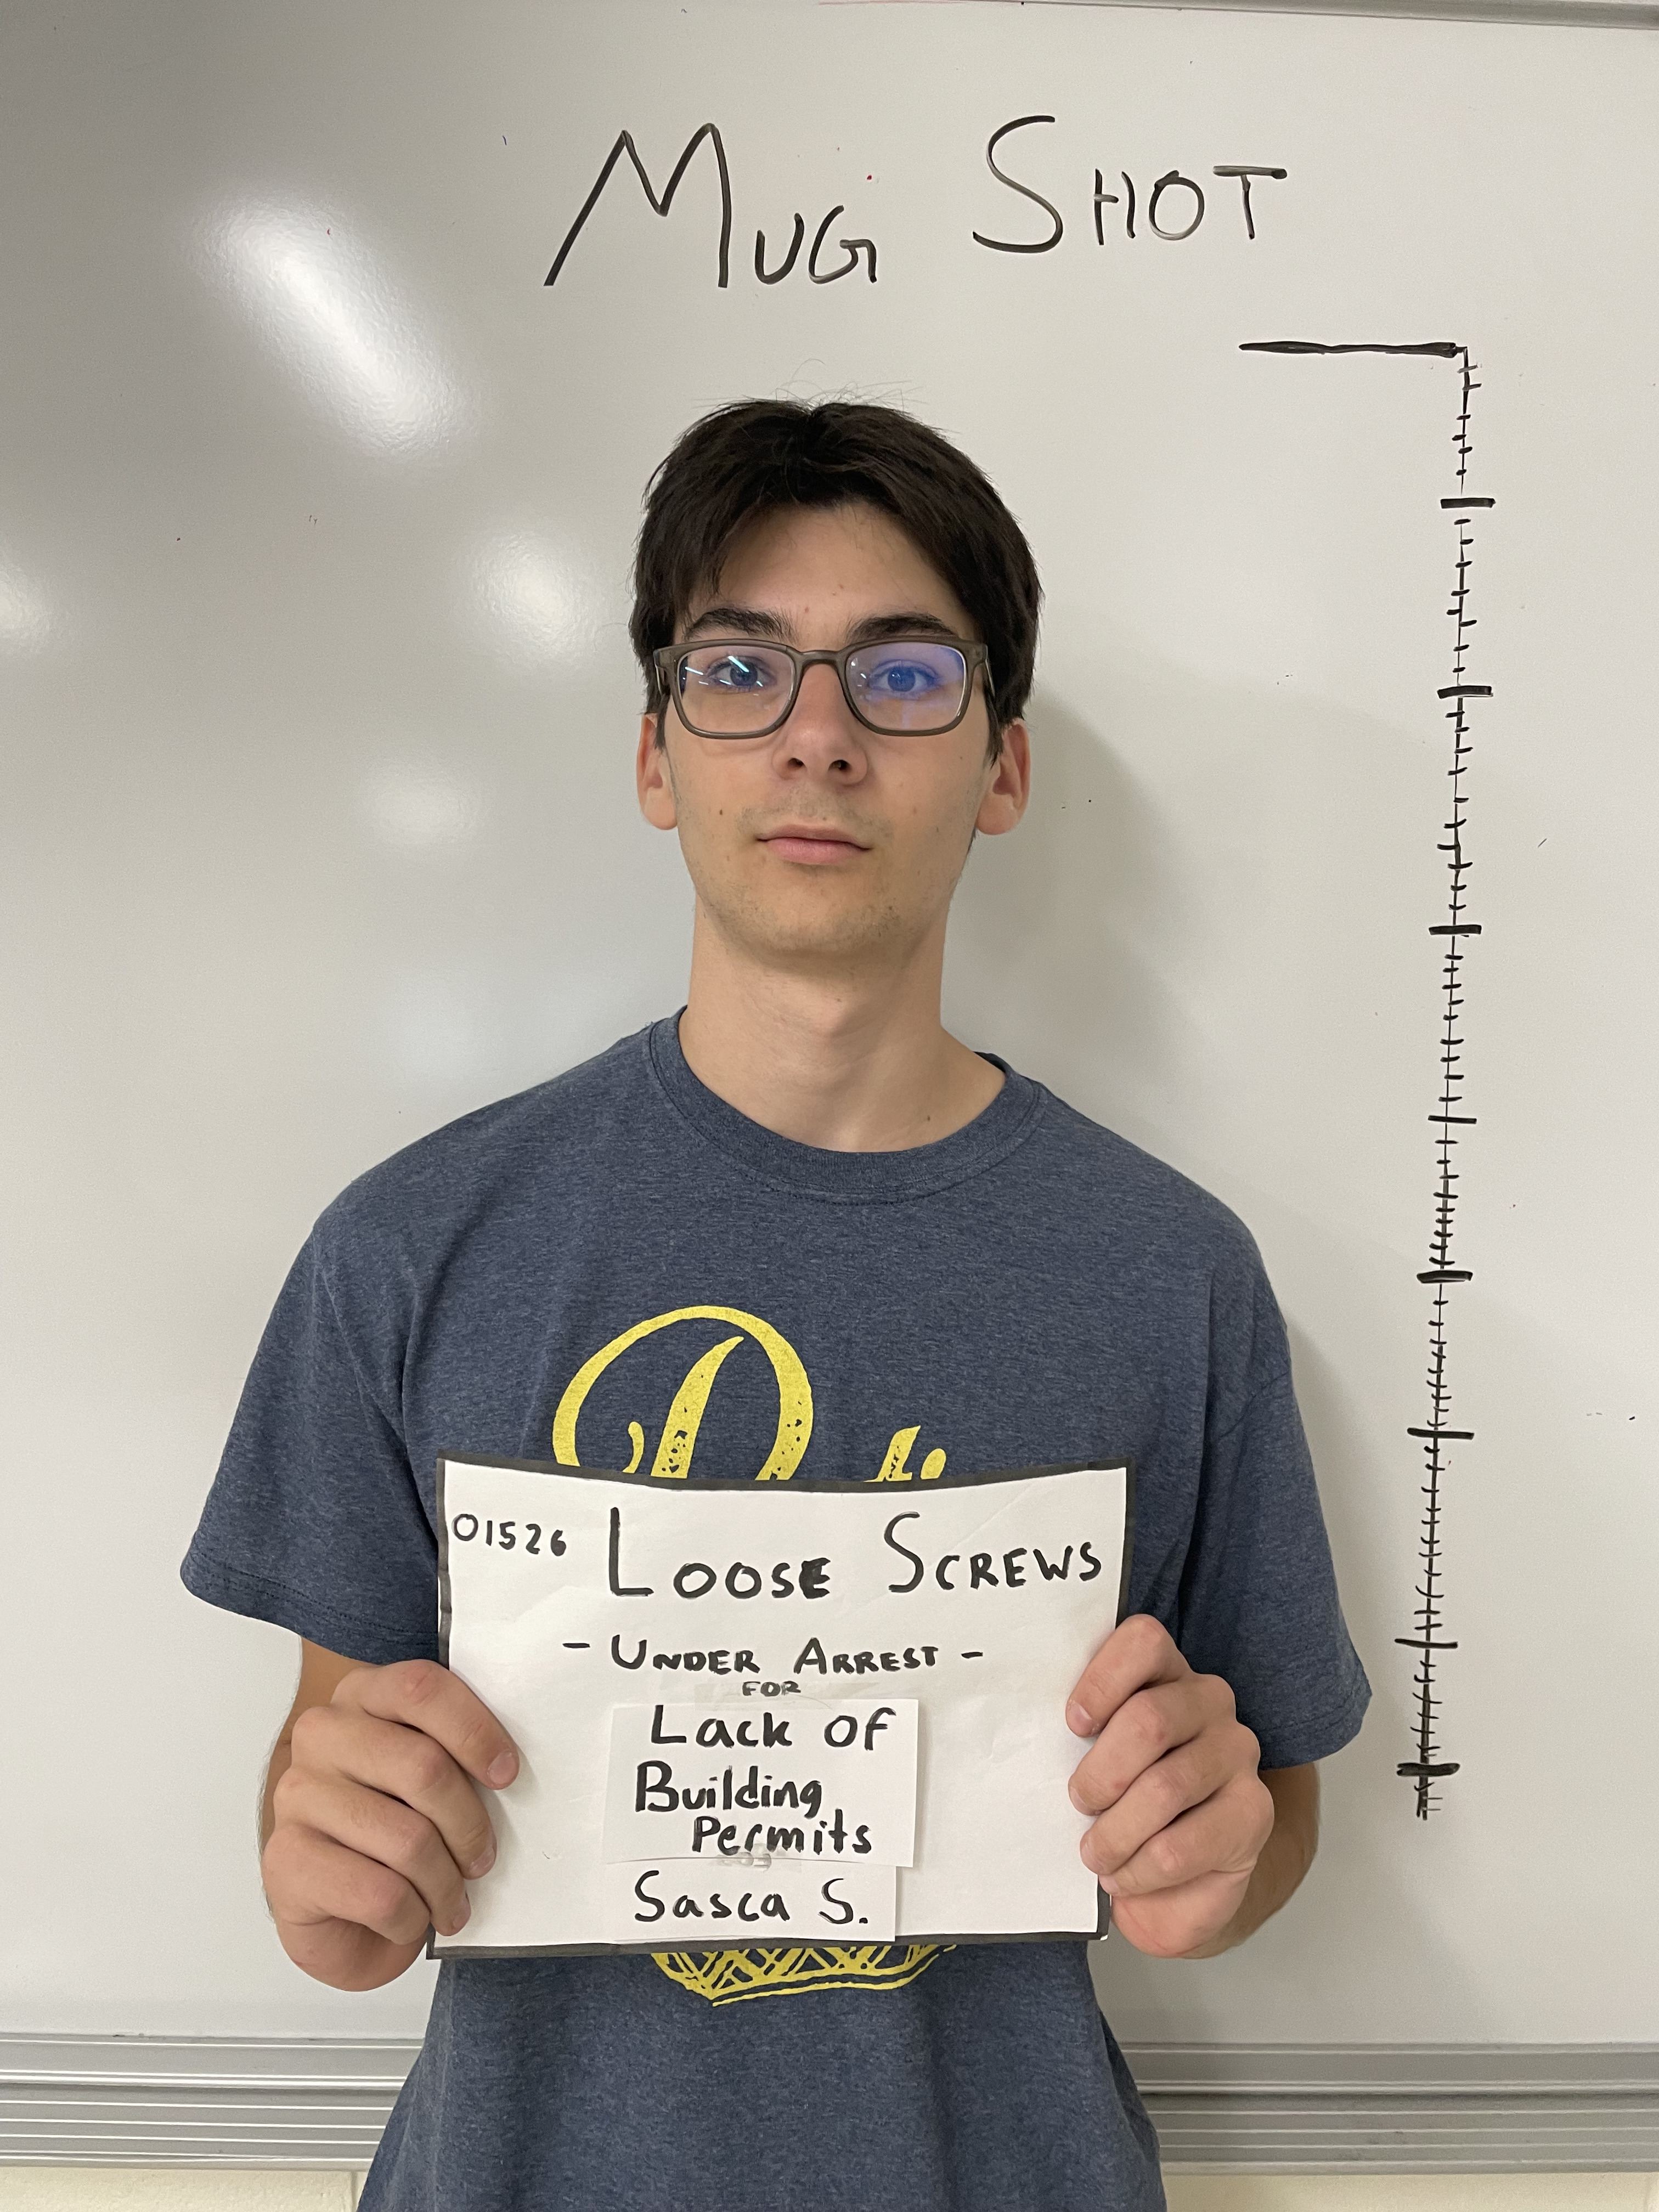 MUG SHOT
01526 LOOSE SCREWS
- UNDER ARREST -
FOR
Lack Of
Building
Permits
Sasca S.